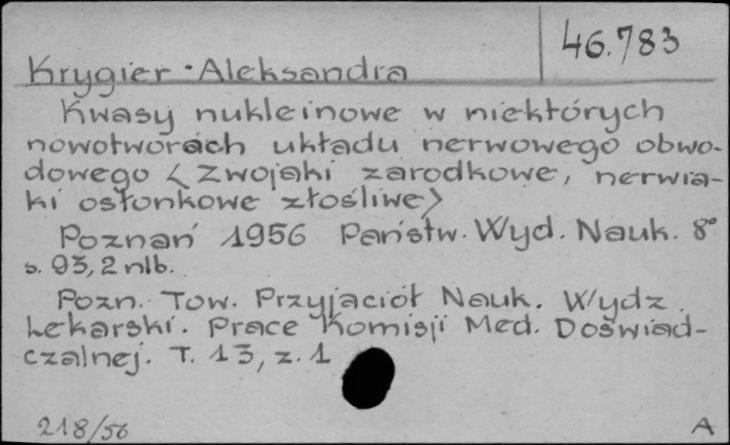 46.783
Krygier Aleksandra
Kwasy nukleinowe w niektórych
nowotworach układu nerwowego obwo-
dowego <Zwojaki zarodkowe, nerwia-
ki osłonkowe złośliwe>
Poznań 1956 Państw. Wyd. Nauk. 8°
s. 93, 2 nlb.
Pozn. Tow. Przyjaciół Nauk. Wydz.
Lekarski. Prace Komisji Med. Doświad-
czalnej. T. 13, z. 1
218/56 A